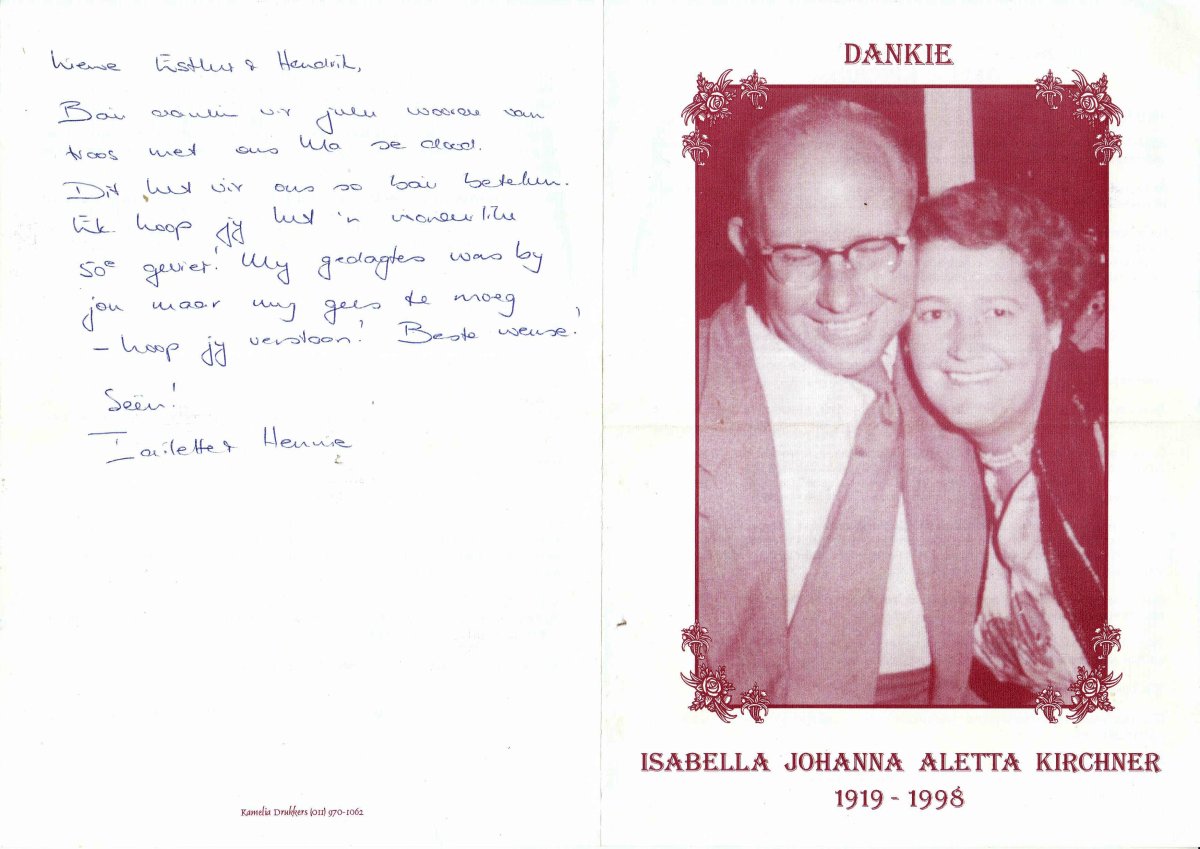 Liewe Esther & Hendrik,
Baie dankie vir julle woorde van
troos met ons Ma se dood.
Dit het vir ons so baie beteken.
Ek hoop jy het 'n wonderlike
50e gevier! My gedagtes was by
jou maar my gees te moeg
– hoop jy verstaan! Beste wense!
Seën!
& Hennie
Kamelia Drukkers (011) 970-1062
DANKIE
ISABELLA JOHANNA ALETTA KIRCHNER
1919 - 1998